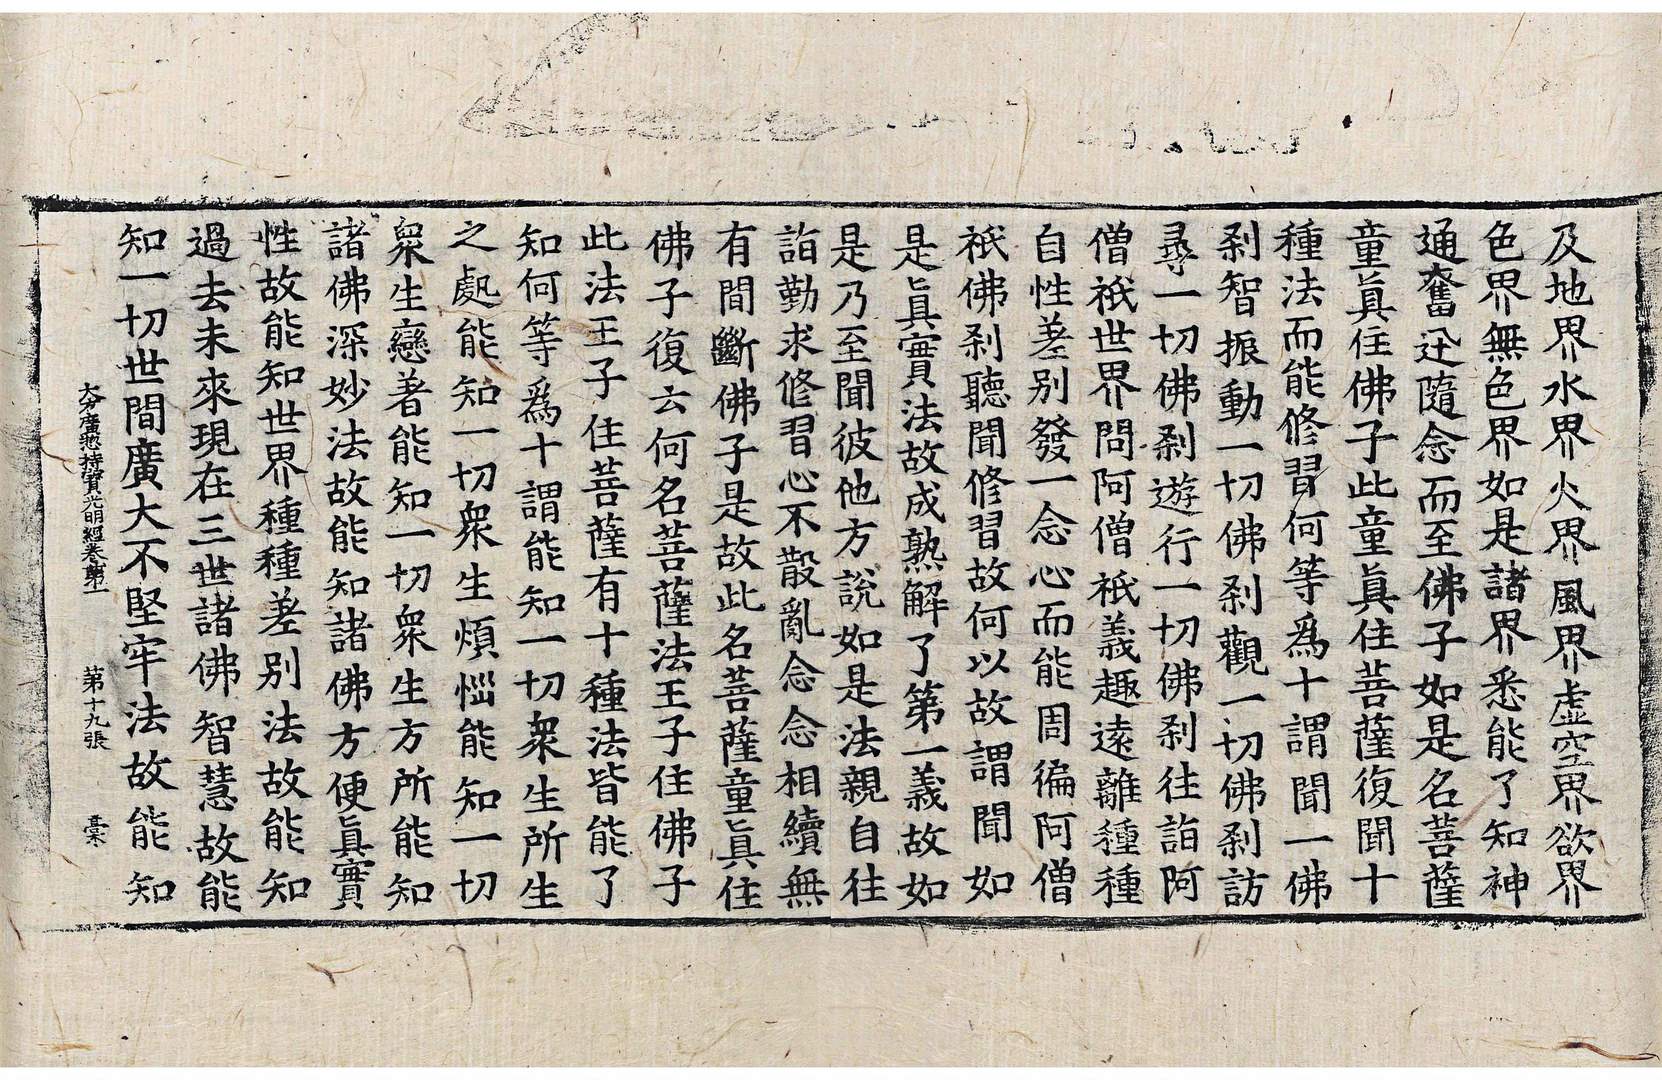 及地界水界火界風界虛空界欲界
色界無色界如是諸界悉能了知神
通奮迅隨念而至佛子如是名菩薩
童眞住佛子此童眞住菩薩復聞十
種法而能修習何等爲十謂聞一佛
刹智振動一切佛刹觀一切佛刹訪
尋一切佛刹遊行一切佛刹往詣阿
僧祇世界問阿僧祇義趣遠離種種
自性差别發一念心而能周徧阿僧
祇佛刹聽聞修習故何以故謂聞如
是眞實法故成熟解了第一義故如
是乃至聞彼他方説如是法親自往
詣勤求修習心不散亂念念相續無
有間斷佛子是故此名菩薩童眞住
佛子復云何名菩薩法王子住佛子
此法王子住菩薩有十種法皆能了
知何等爲十謂能知一切衆生所生
之處能知一切衆生煩惱能知一切
衆生戀著能知一切衆生方所能知
諸佛深妙法故能知諸佛方便眞實
性故能知世界種種差别法故能知
過去未來現在三世諸佛智慧故能
知一切世間廣大不堅牢法故能知
大方廣惣持寳光明經卷第一 第十九張 槖